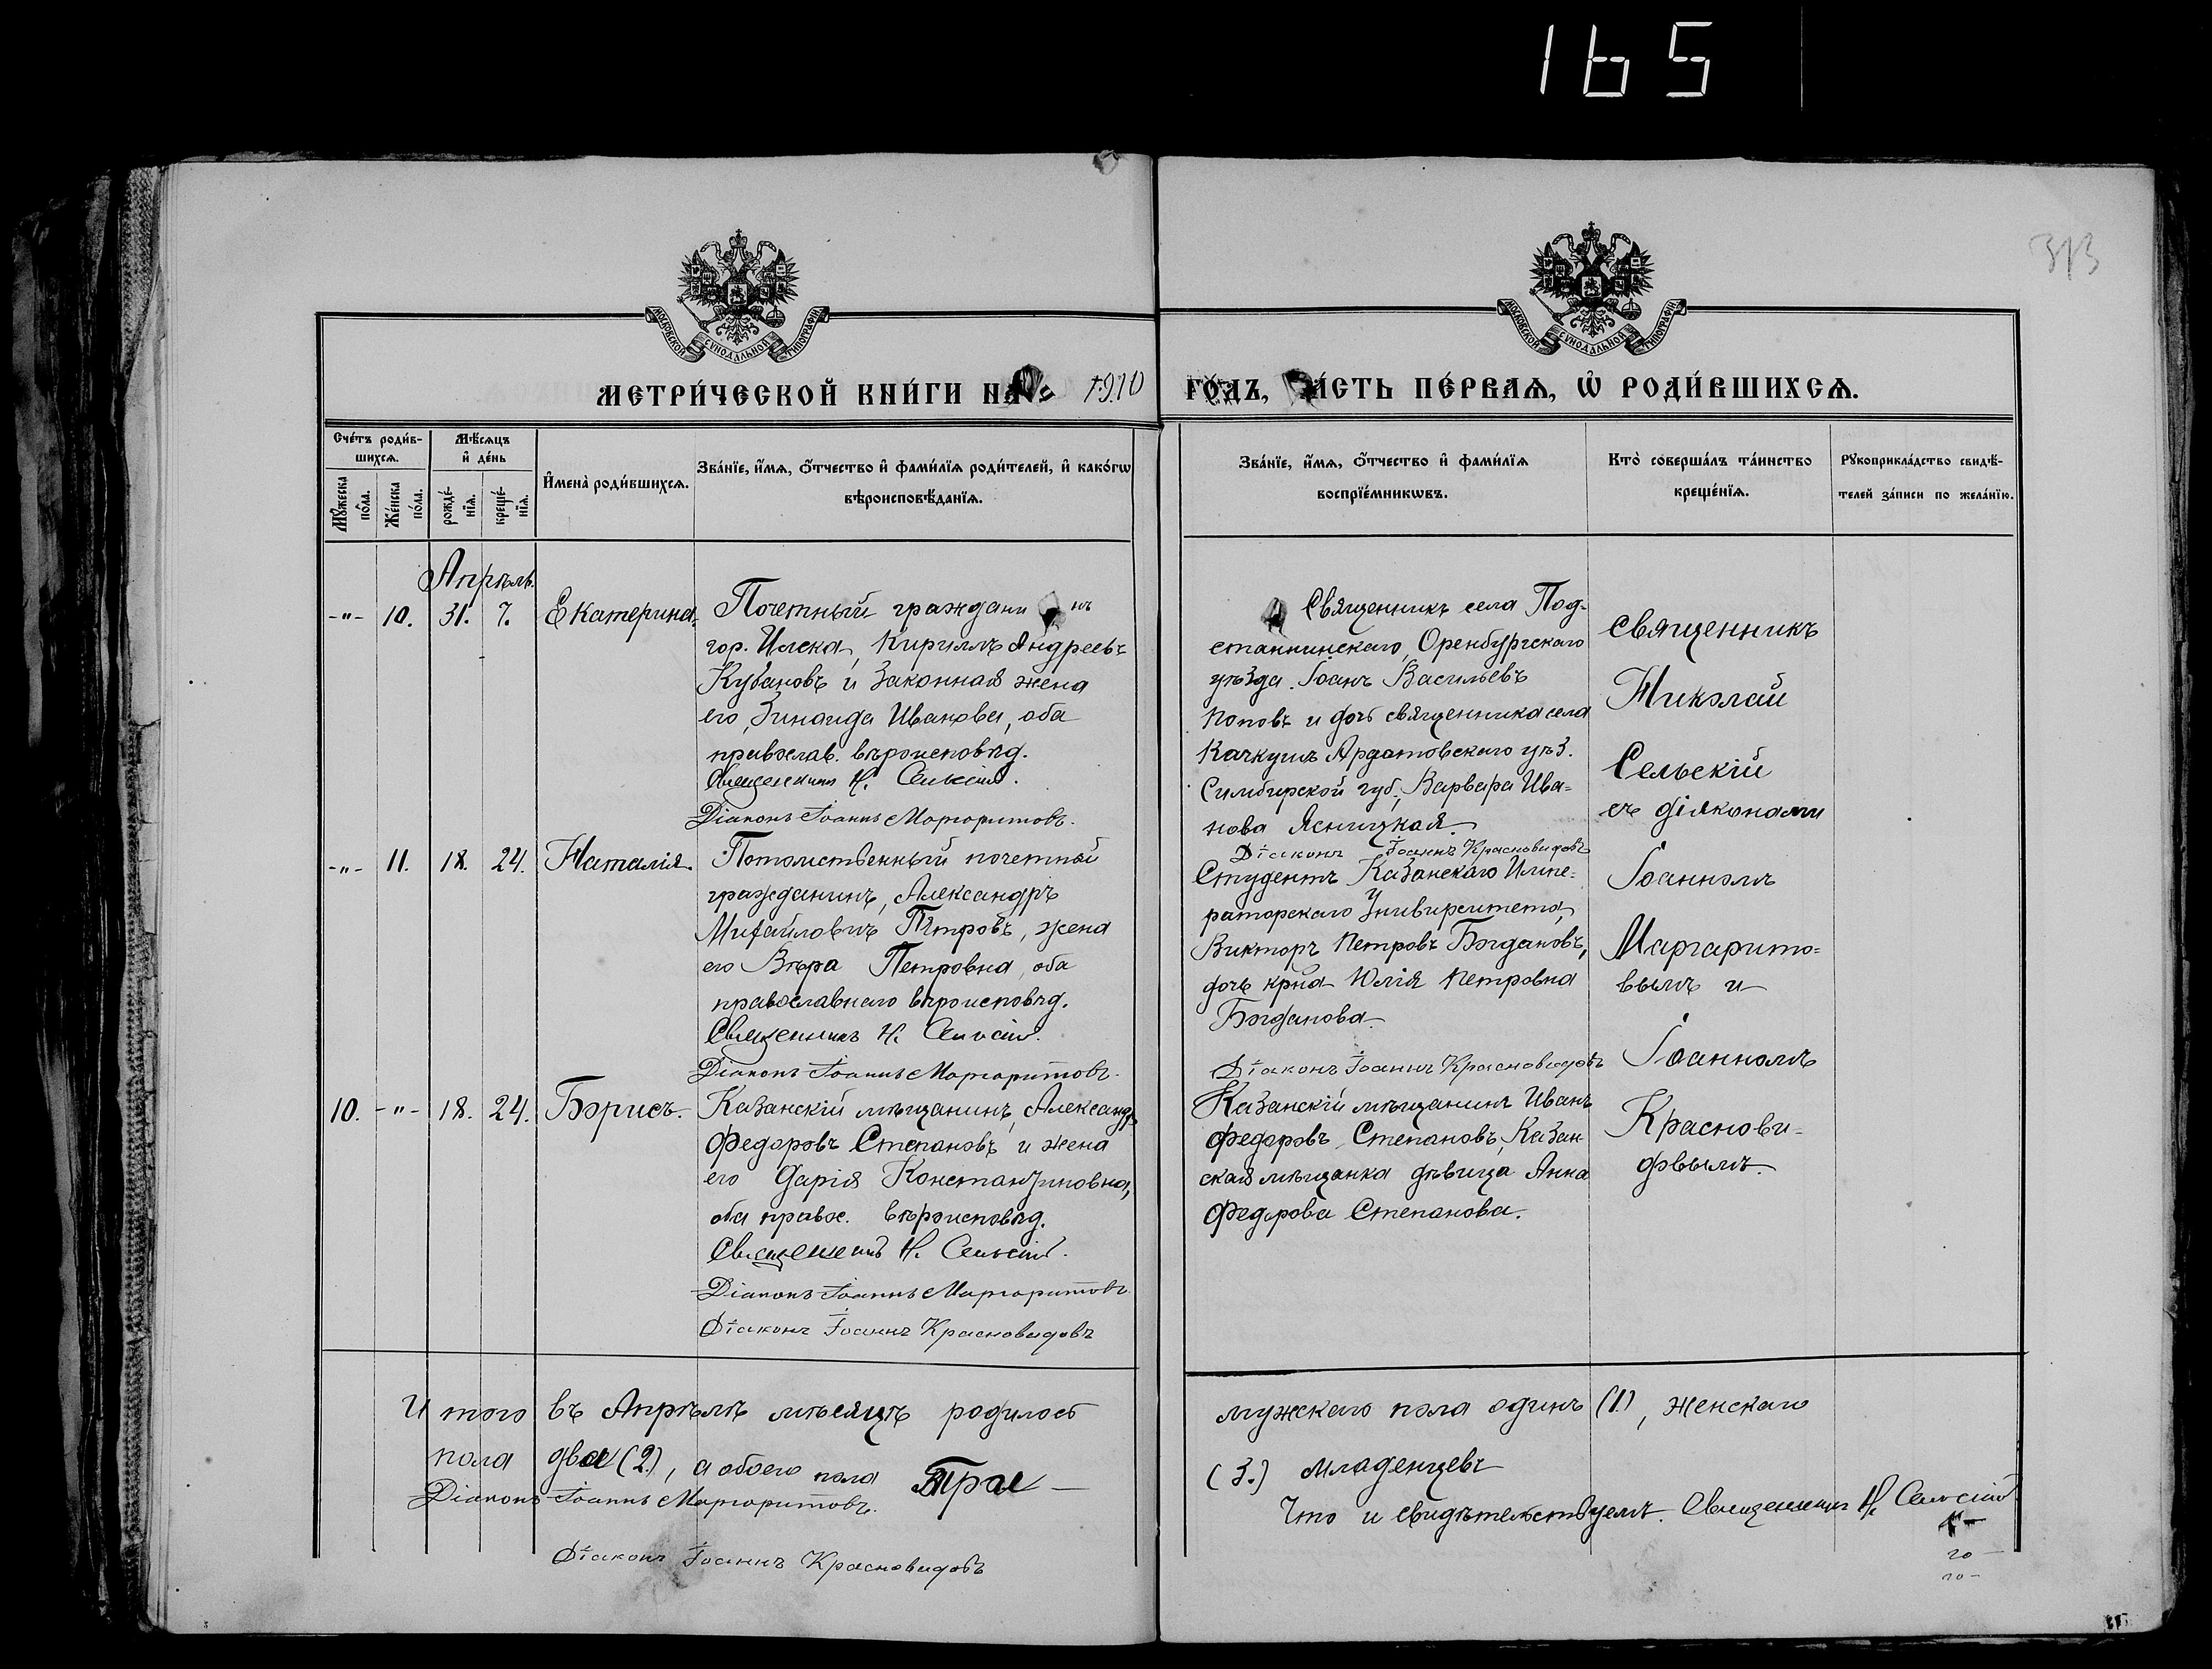 165
313
МОСКОВСКОЙ СѴНОДАЛЬНОЙ ТИПОГРАФІИ
МОСКОВСКОЙ СѴНОДАЛЬНОЙ ТИПОГРАФІИ
МЕТРИ́ЧЕСКОЙ КНИ́ГИ НА 1910 ГОДЪ, ЧА́СТЬ ПЕ́РВАѦ, Ѡ҆ РОДИ́ВШИХСѦ.
Сче́тъ роди́в-
шихсѧ.
Мѣ́сѧцъ
и҆ де́нь
Мꙋ́жеска по́ла.
Же́нска по́ла.
рожде́-
нїѧ.
креще́-
нїѧ.
И҆мена̀ роди́вшихсѧ.
Зва́нїе, и҆́мѧ, ѻ҆́тчество и҆ фами́лїѧ роди́телей, и҆ како́гѡ
вѣроисповѣ́данїѧ.
Зва́нїе, и҆́мѧ, ѻ҆́тчество и҆ фами́лїѧ
воспрїе́мникѡвъ.
Кто̀ соверша́лъ та́инство
креще́нїѧ.
Рꙋкоприкла́дство свидѣ́-
телей за́писи по жела́нїю.
Апрѣль.
-"- 10. 31. 7. Екатерина.
Почетный гражданинъ
гор. Илека, Кириллъ Андреевъ
Кубановъ и законная жена
его, Зинаида Иванова, оба
православ. вѣроисповѣд.
Священникъ Н. Сельскій.
Діаконъ Іоаннъ Маргаритовъ.
Священникъ села Под-
станнинскаго, Оренбургскаго
уѣзда Іоанъ Васильевъ
Поповъ и дочь священника села
Качкушъ Ардатовскаго уѣз.
Симбирской губ., Варвара Ива-
нова Ясницкая.
Діаконъ Іоаннъ Красновидовъ
священникъ
Николай
Сельскій
съ діяконами
Іоанномъ
Маргарито-
вымъ и
Іоанномъ
Краснови-
довымъ.
-"- 11. 18. 24. Наталія.
Потомственный почетный
гражданинъ, Александръ
Михайловичъ Петровъ, жена
его Вѣра Петровна, оба
православнаго вѣроисповѣд.
Священникъ Н. Сельскій.
Діаконъ Іоаннъ Маргаритовъ.
Студентъ Казанскаго Импе-
раторскаго Унивирситета,
Викторъ Петровъ Богдановъ,
дочь крна Юлія Петровна
Богданова.
Діаконъ Іоаннъ Красновидовъ
10. -"- 18. 24. Борисъ.
Казанскій мѣщанинъ, Александръ
Федоровъ Степановъ и жена
его Дарія Константиновна,
оба правос. вѣроисповѣд.
Священникъ Н. Сельскій.
Діаконъ Іоаннъ Маргаритовъ
Діаконъ Іоаннъ Красновидовъ
Казанскій мѣщанинъ Иванъ
Федоровъ Степановъ, Казан
ская мѣщанка дѣвица Анна
Федорова Степанова.
Итого въ Апрѣлѣ мѣсяцѣ родилось мужскаго пола одинъ (1.), женскаго
пола двое (2.), а обоего пола Трое — (3.) младенцевъ
Діаконъ Іоаннъ Маргаритовъ.
Что и свидѣтельствуемъ. Священникъ Н. Сельскій
Діаконъ Іоаннъ Красновидовъ